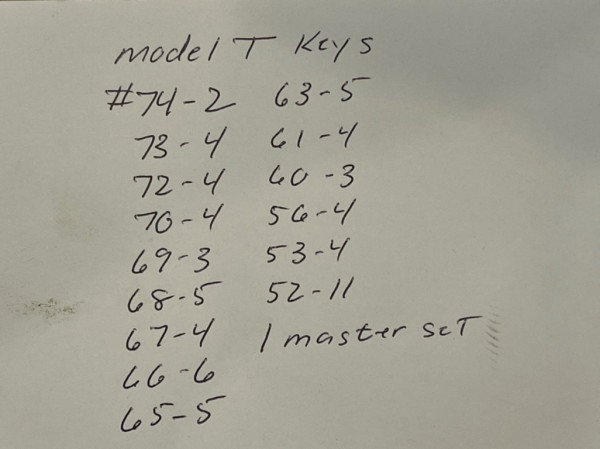 model T Keys
#74-2
73-4
72-4
70-4
69-3
68-5
67-4
66-6
65-5
63-5
61-4
60-3
56-4
53-4
52-11
1 master set